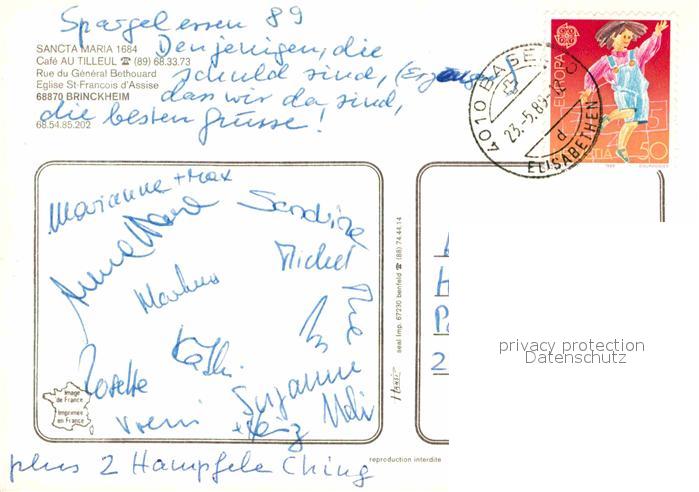 Spargelessen 89
SANCTA MARIA 1684
Café AU TILLEUL ☎ (89) 68.33.73
Rue du Général Bethouard
Eglise St-Francois d'Assise
68870 BRINCKHEIM
68.54.85.202
Denjenigen, die
schuld sind, (Erzeuger)
dass wir da sind,
die besten Grüsse!
4010 BASEL
23.-5.89
d
ELISABETHEN
EUROPA
HELVETIA 50
Marianne + Max
Sandrine
Michel
Markus
Käthi
Rosette
Vreni
Suzanne
+ Heinz
Ueli
seal Imp. 67230 benfeld ☎ (88) 74.44.14
Image
de France
Imprimée
en France
reproduction interdite
plus 2 Hampfele Ching
privacy protection
Datenschutz